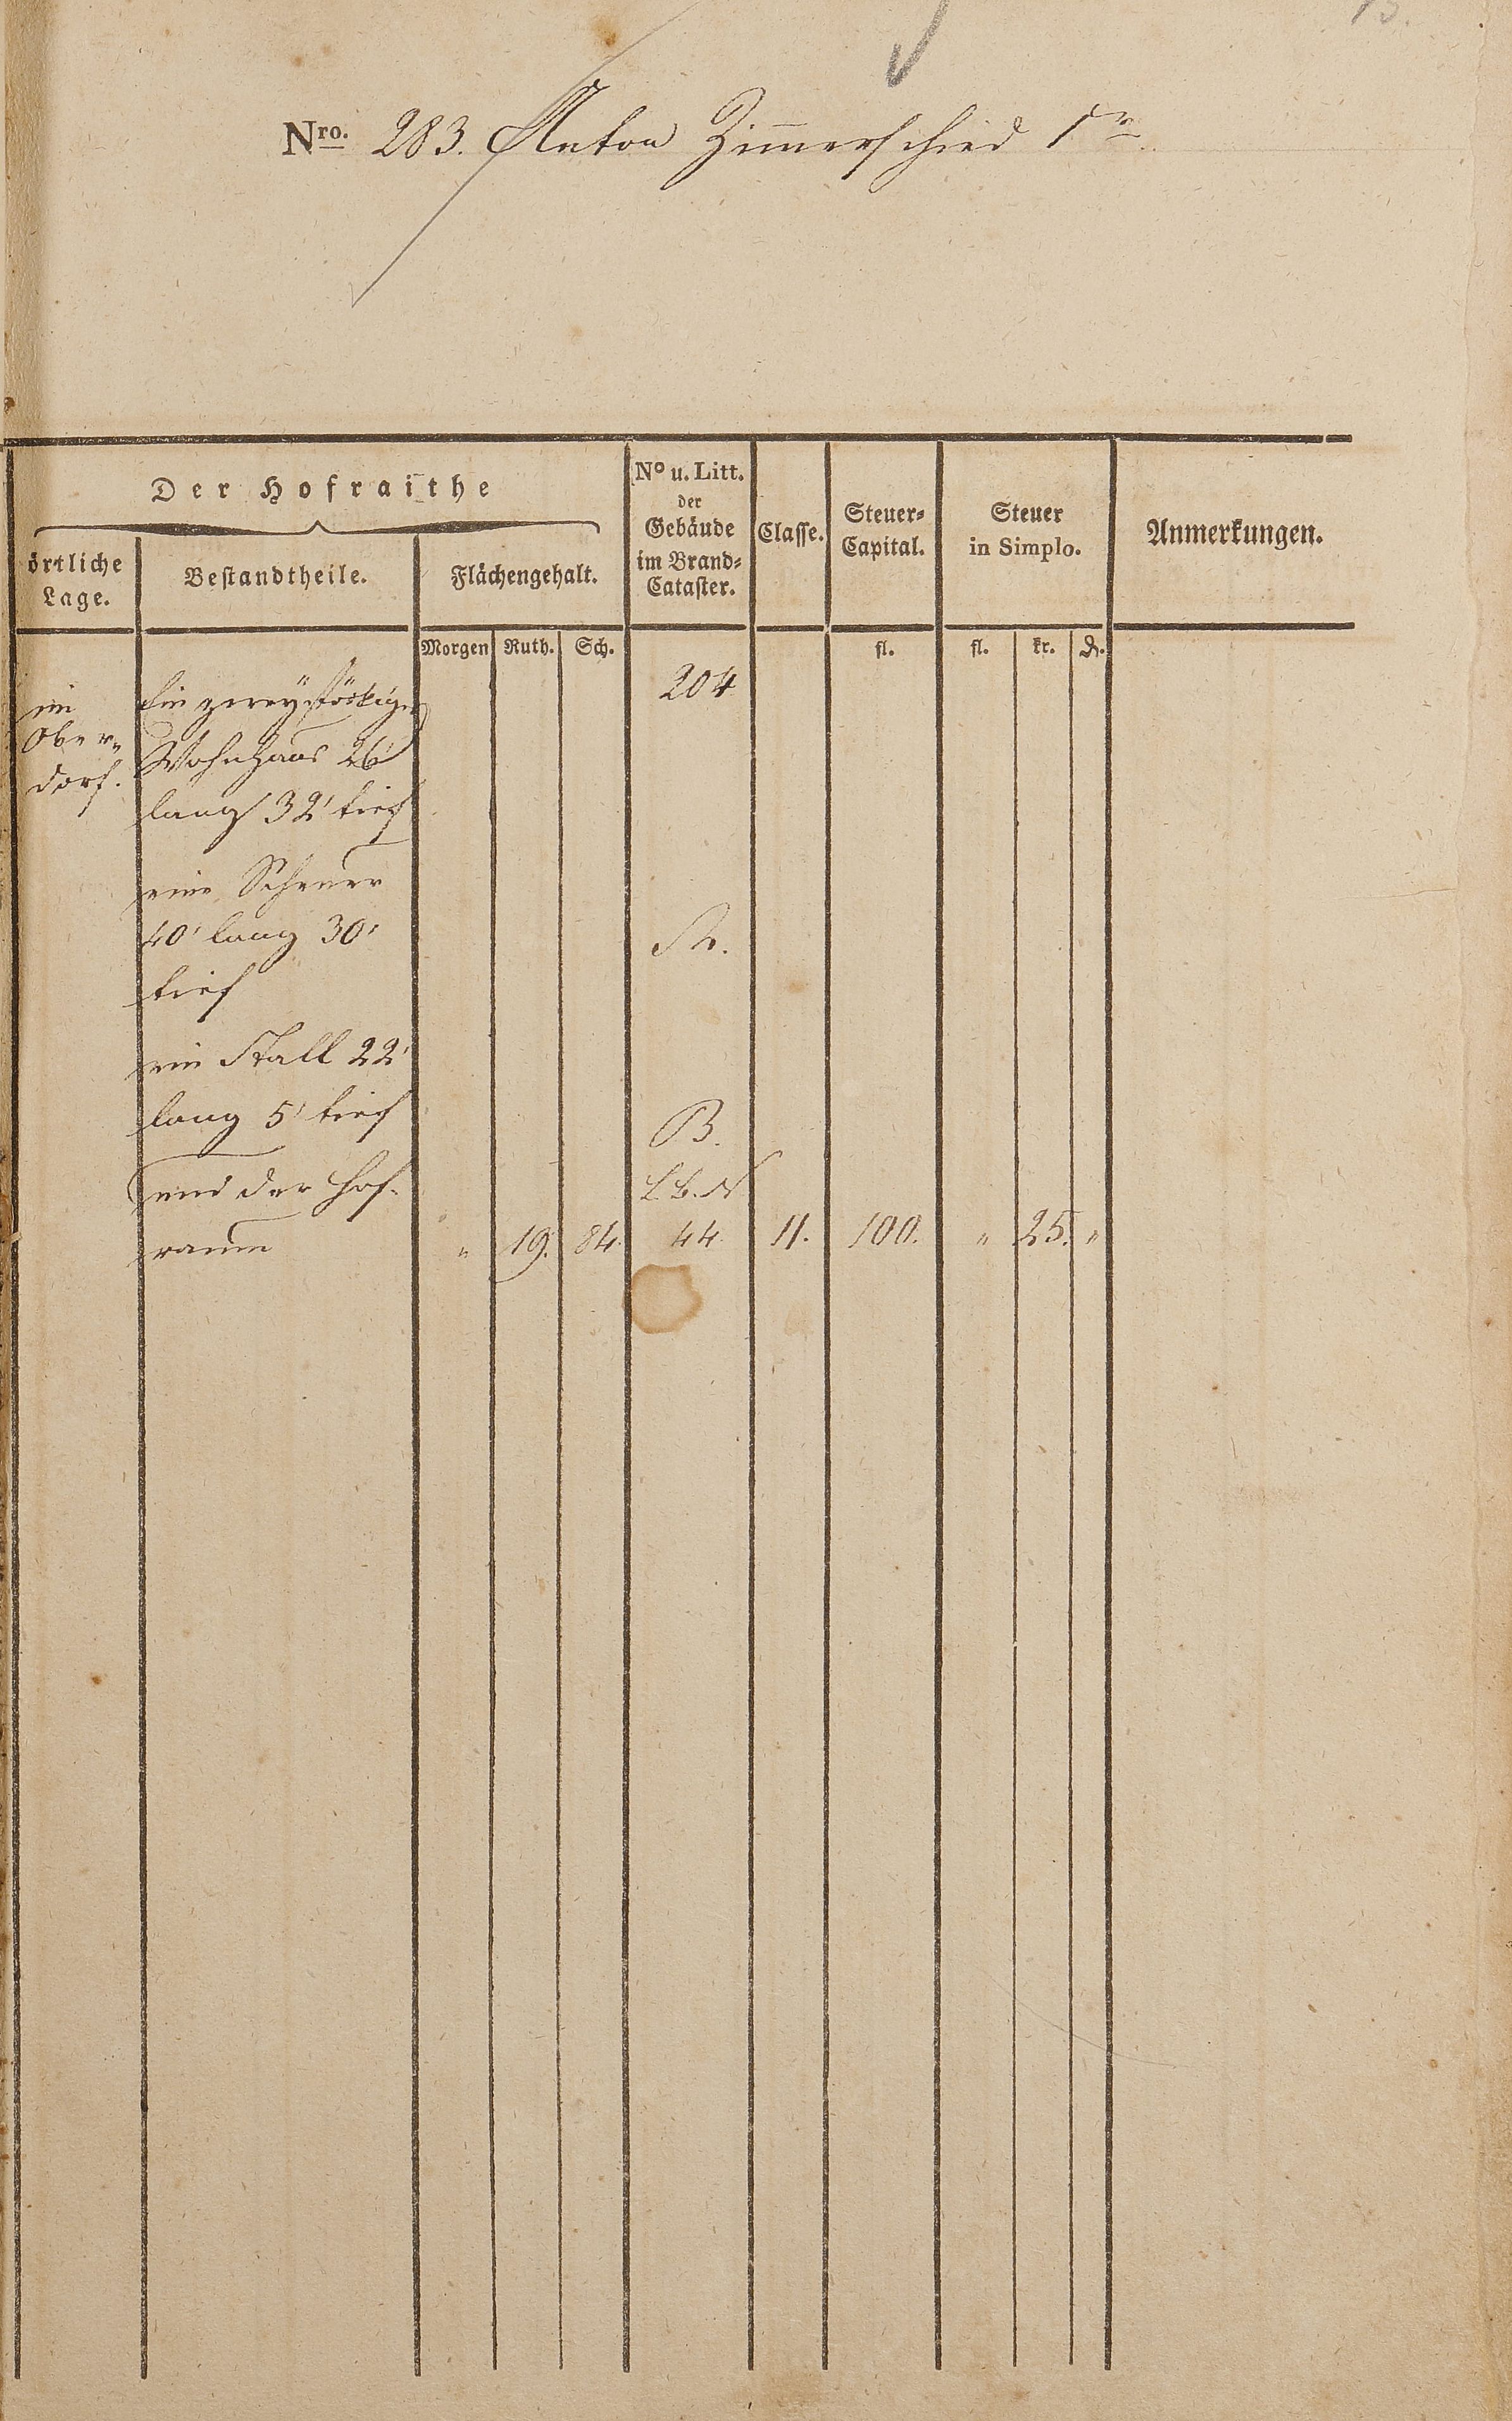 13.
Nro. 283. Anton Zimmerschied 1r
Der Hofraithe
örtliche Lage.
Bestandtheile.
Flächengehalt.
No u. Litt.
der
Gebäude
im Brand-
Cataster.
Classe.
Steuer-
Capital.
Steuer
in Simplo.
Anmerkungen.
Morgen Ruth. Sch. fl. fl. kr. d.
im Ein zweÿstöckiges 204
Ober- Wohnhaus 26'
dorf. lang 32' tief
eine Scheuer
40' lang 30' A.
tief
ein Stall 22'
lang 5' tief B.
und der Hof- L. B. N
raum " 19. 84. 44. 11. 100. " 25. "